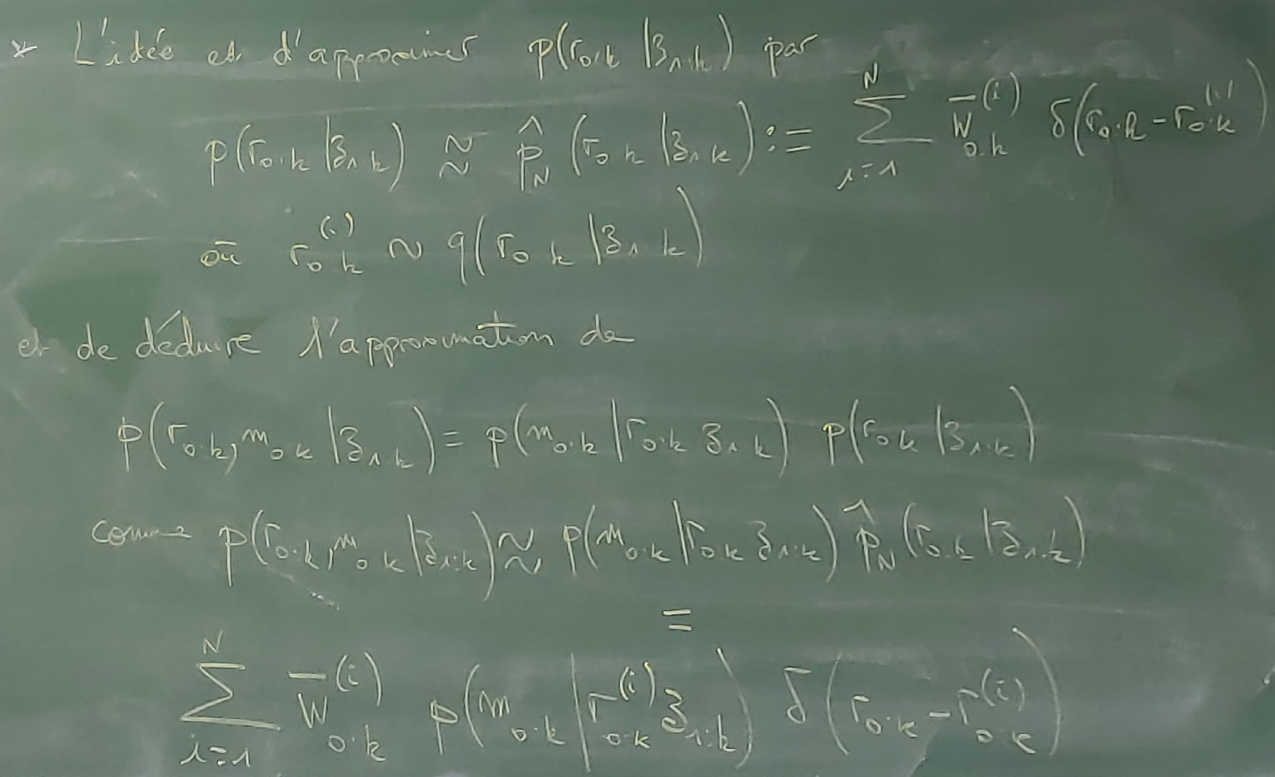 * L'idée est d'approximer p(r₀:k | z₁:k) par
p(r₀:k | z₁:k) ≈ p̂_N(r₀:k | z₁:k) := ∑_{i=1}^{N} W̄₀:k^(i) δ(r₀:k − r₀:k^(i))
où r₀:k^(i) ~ q(r₀:k | z₁:k)
et de déduire l'approximation de
p(r₀:k, m₀:k | z₁:k) = p(m₀:k | r₀:k z₁:k) p(r₀:k | z₁:k)
comme p(r₀:k, m₀:k | z₁:k) ≈ p(m₀:k | r₀:k z₁:k) p̂_N(r₀:k | z₁:k)
=
∑_{i=1}^{N} W̄₀:k^(i) p(m₀:k | r₀:k^(i) z₁:k) δ(r₀:k − r₀:k^(i))